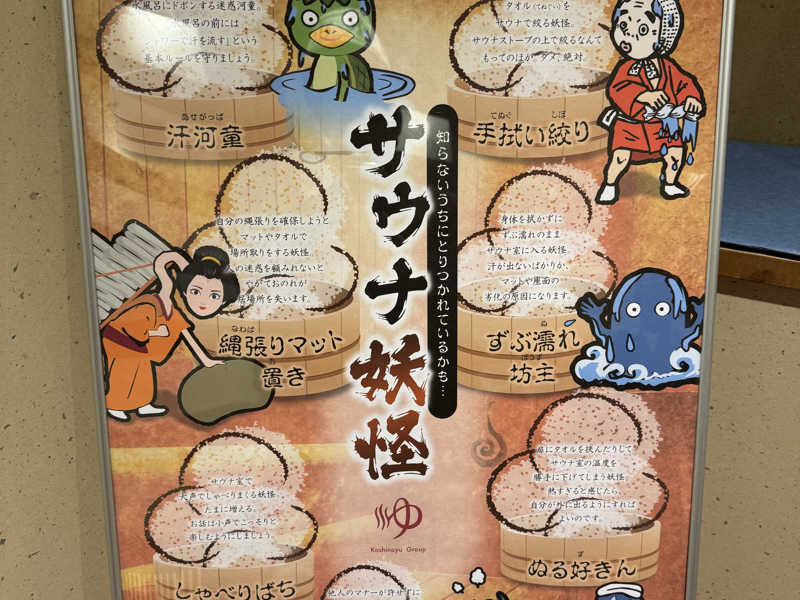 水風呂にドボンする迷惑河童。
水風呂の前には
「シャワーで汗を流す」という
基本ルールを守りましょう。
あせがっぱ
汗河童
タオル(てぬぐい)を
サウナで絞る妖怪。
サウナストーブの上で絞るなんて
もってのほか。ダメ、絶対。
てぬぐ しぼ
手拭い絞り
サウナ妖怪
知らないうちにとりつかれているかも…
自分の縄張りを確保しようと
マットやタオルで
場所取りをする妖怪。
人の迷惑を顧みれないと
やがておのれが
居場所を失います。
なわば
縄張りマット
お
置き
身体を拭かずに
ずぶ濡れのまま
サウナ室に入る妖怪。
汗が出ないばかりか、
マットや座面の
劣化の原因になります。
ぬ
ずぶ濡れ
ぼうず
坊主
サウナ室で
大声でしゃべりまくる妖怪。
たまに増える。
お話は小声でこっそりと
楽しむようにしましょう。
しゃべりばち
扉にタオルを挟んだりして
サウナ室の温度を
勝手に下げてしまう妖怪。
熱すぎると感じたら、
自分が外に出るようにすれば
よいのです。
ず
ぬる好きん
ゆ
Koshinoyu Group
他人のマナーが許せずに